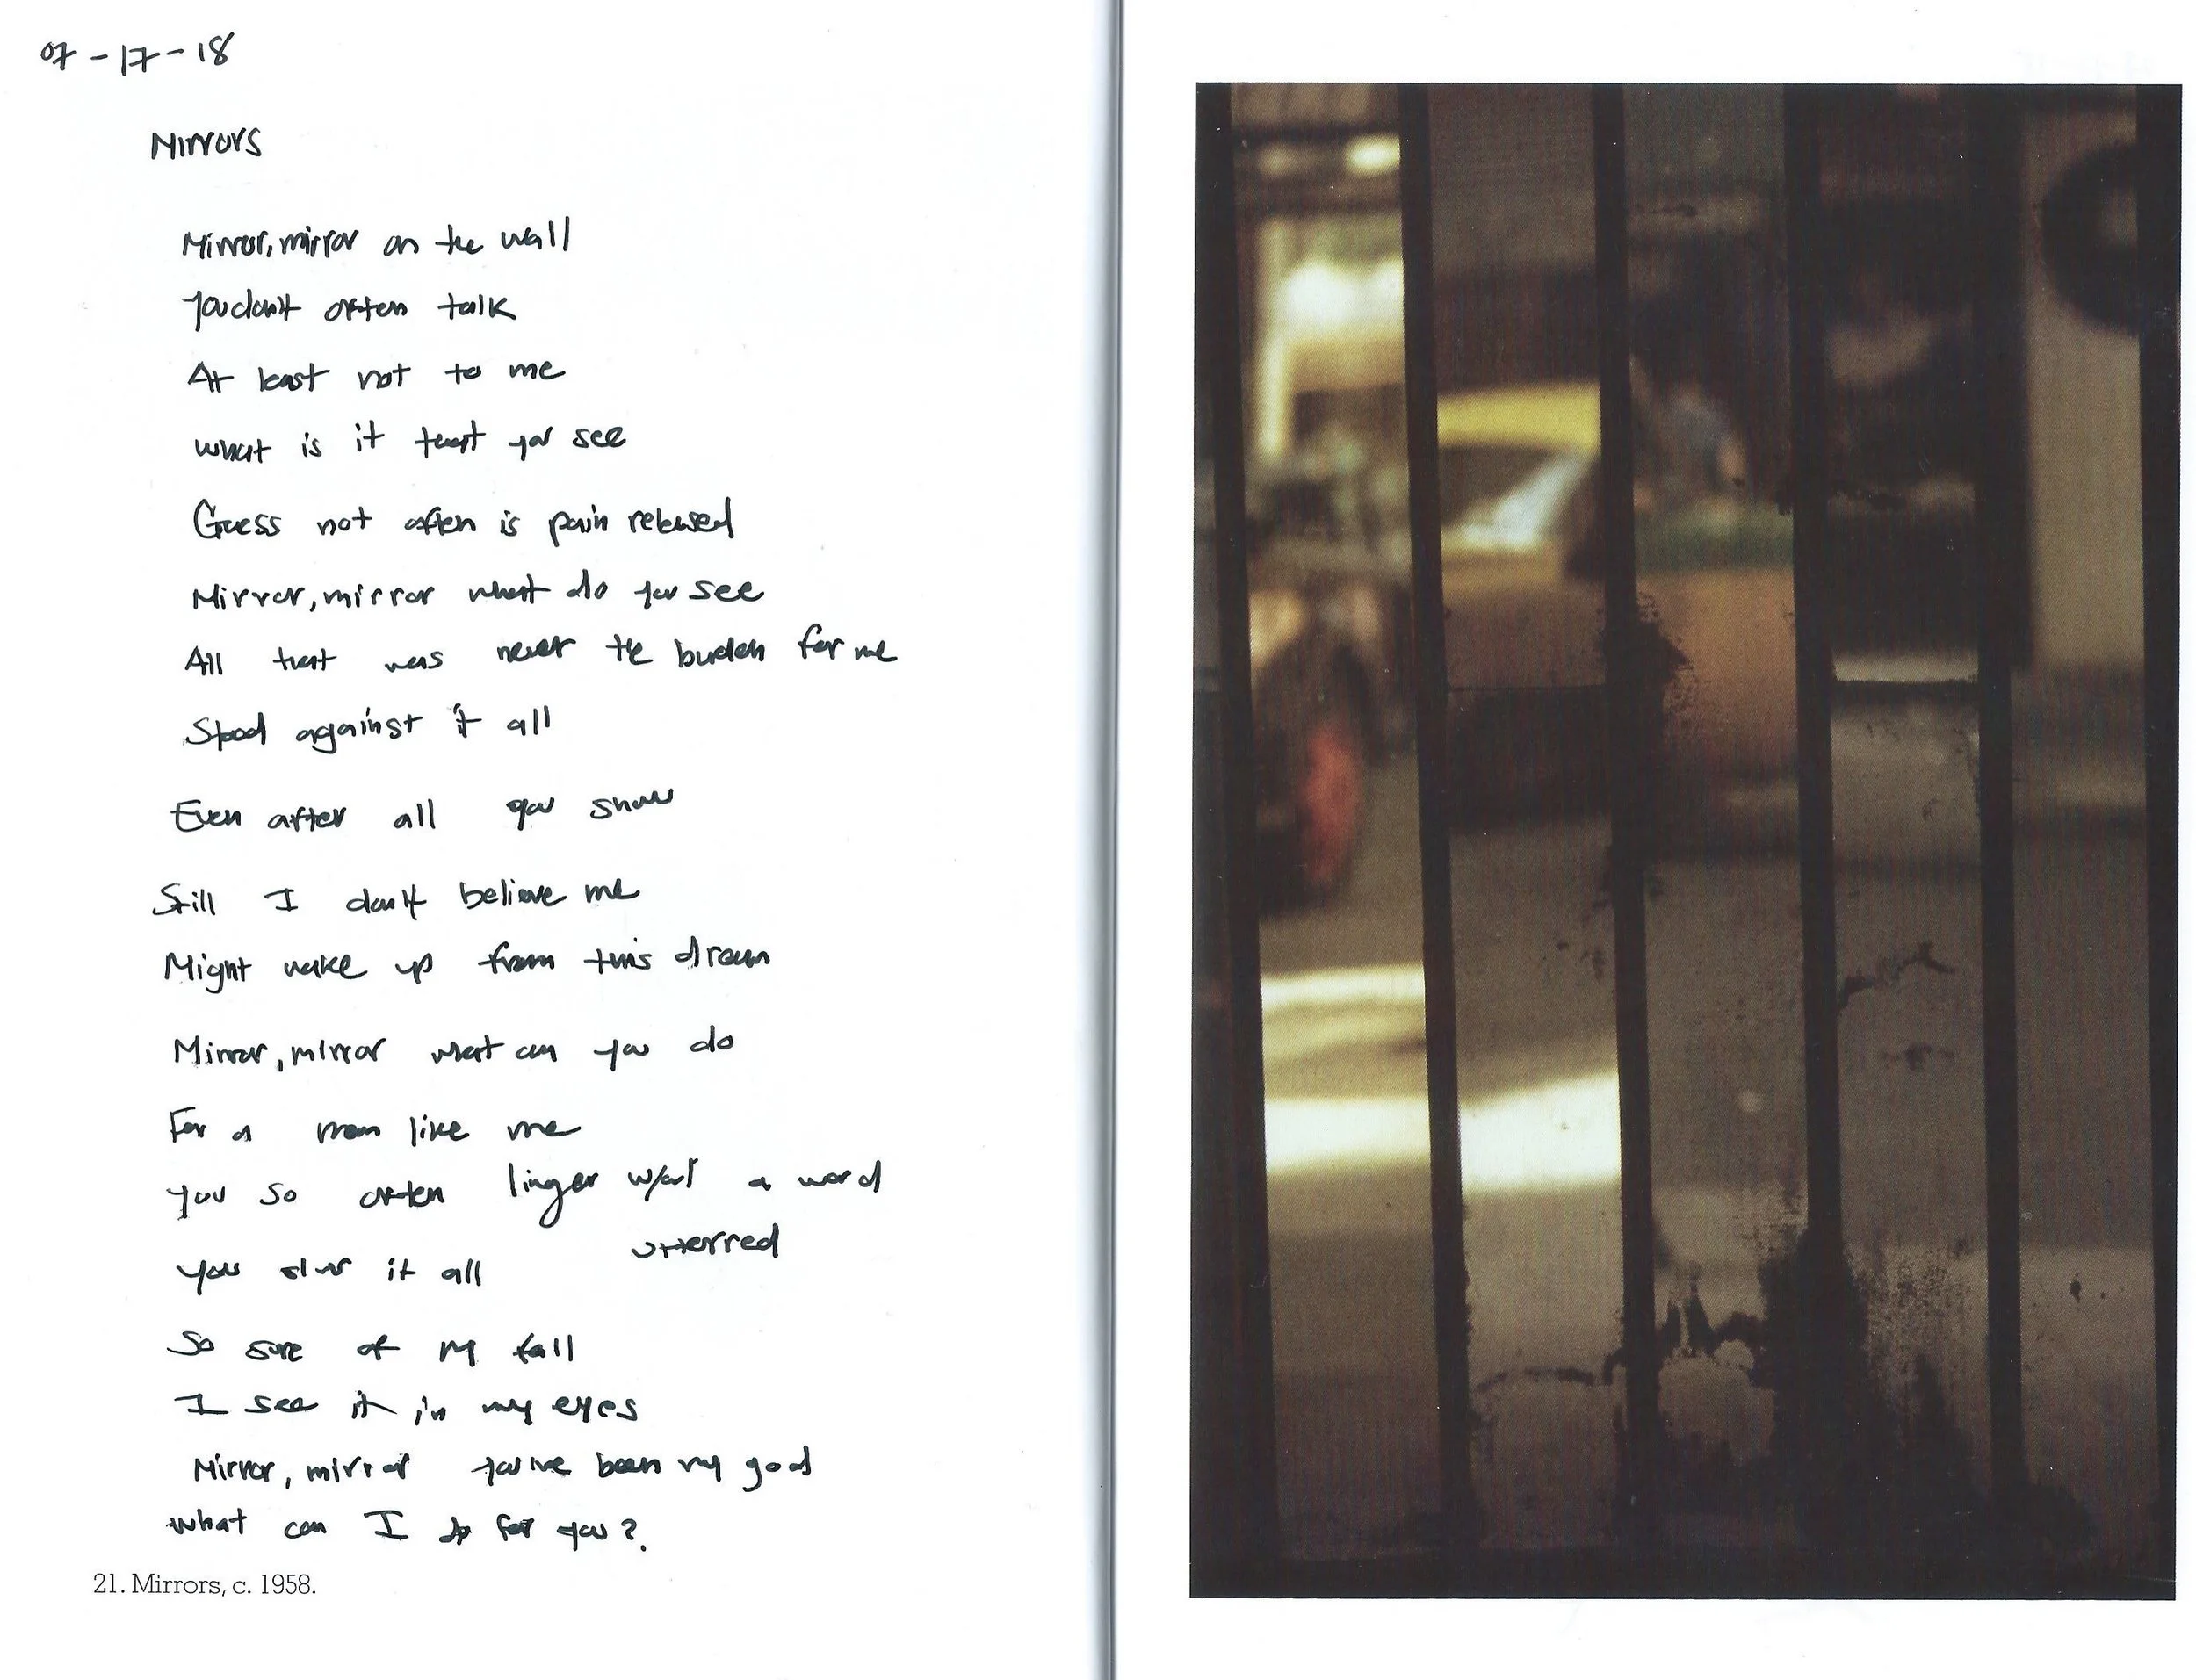 07-17-18
Mirrors
Mirror, mirror on the wall
You don't often talk
At least not to me
What is it that you see
Guess not often is pain released
Mirror, mirror what do you see
All that was never the burden for me
Stood against it all
Even after all you show
Still I don't believe me
Might wake up from this dream
Mirror, mirror what can you do
For a man like me
You so often linger w/out a word
utterred
You it all
So sure of my fall
I see it in my eyes
Mirror, mirror you've been my
What can I do for you?
21. Mirrors, c. 1958.